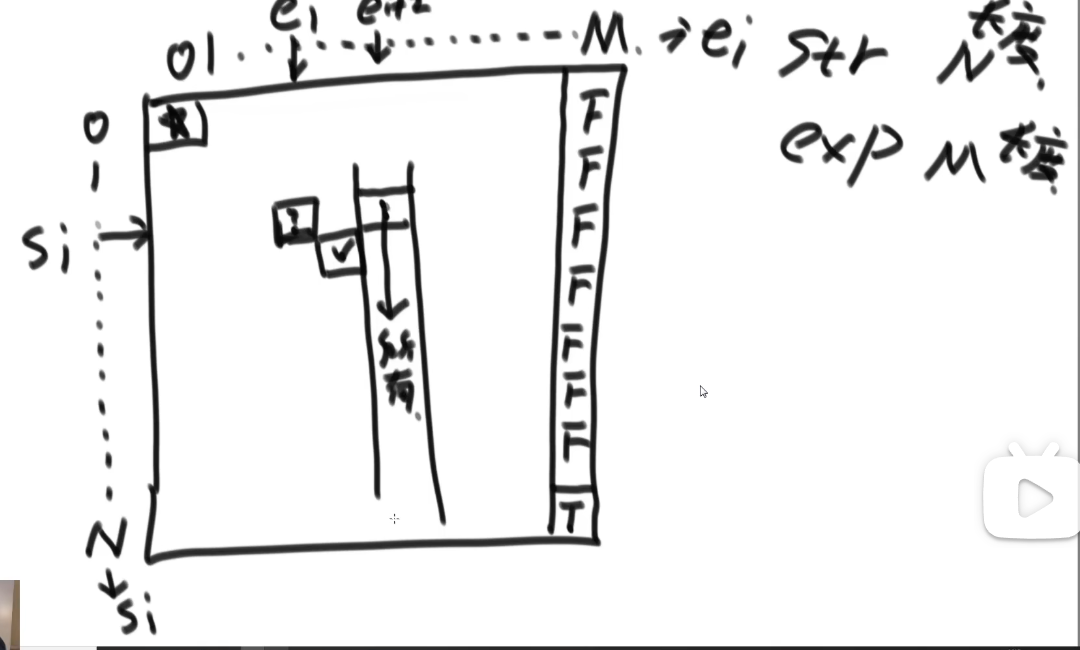 ei ei+2
01 M → ei str N长度
exp M长度
0
1
si
N
si
*
?
✓
所有
F
F
F
F
F
F
F
T